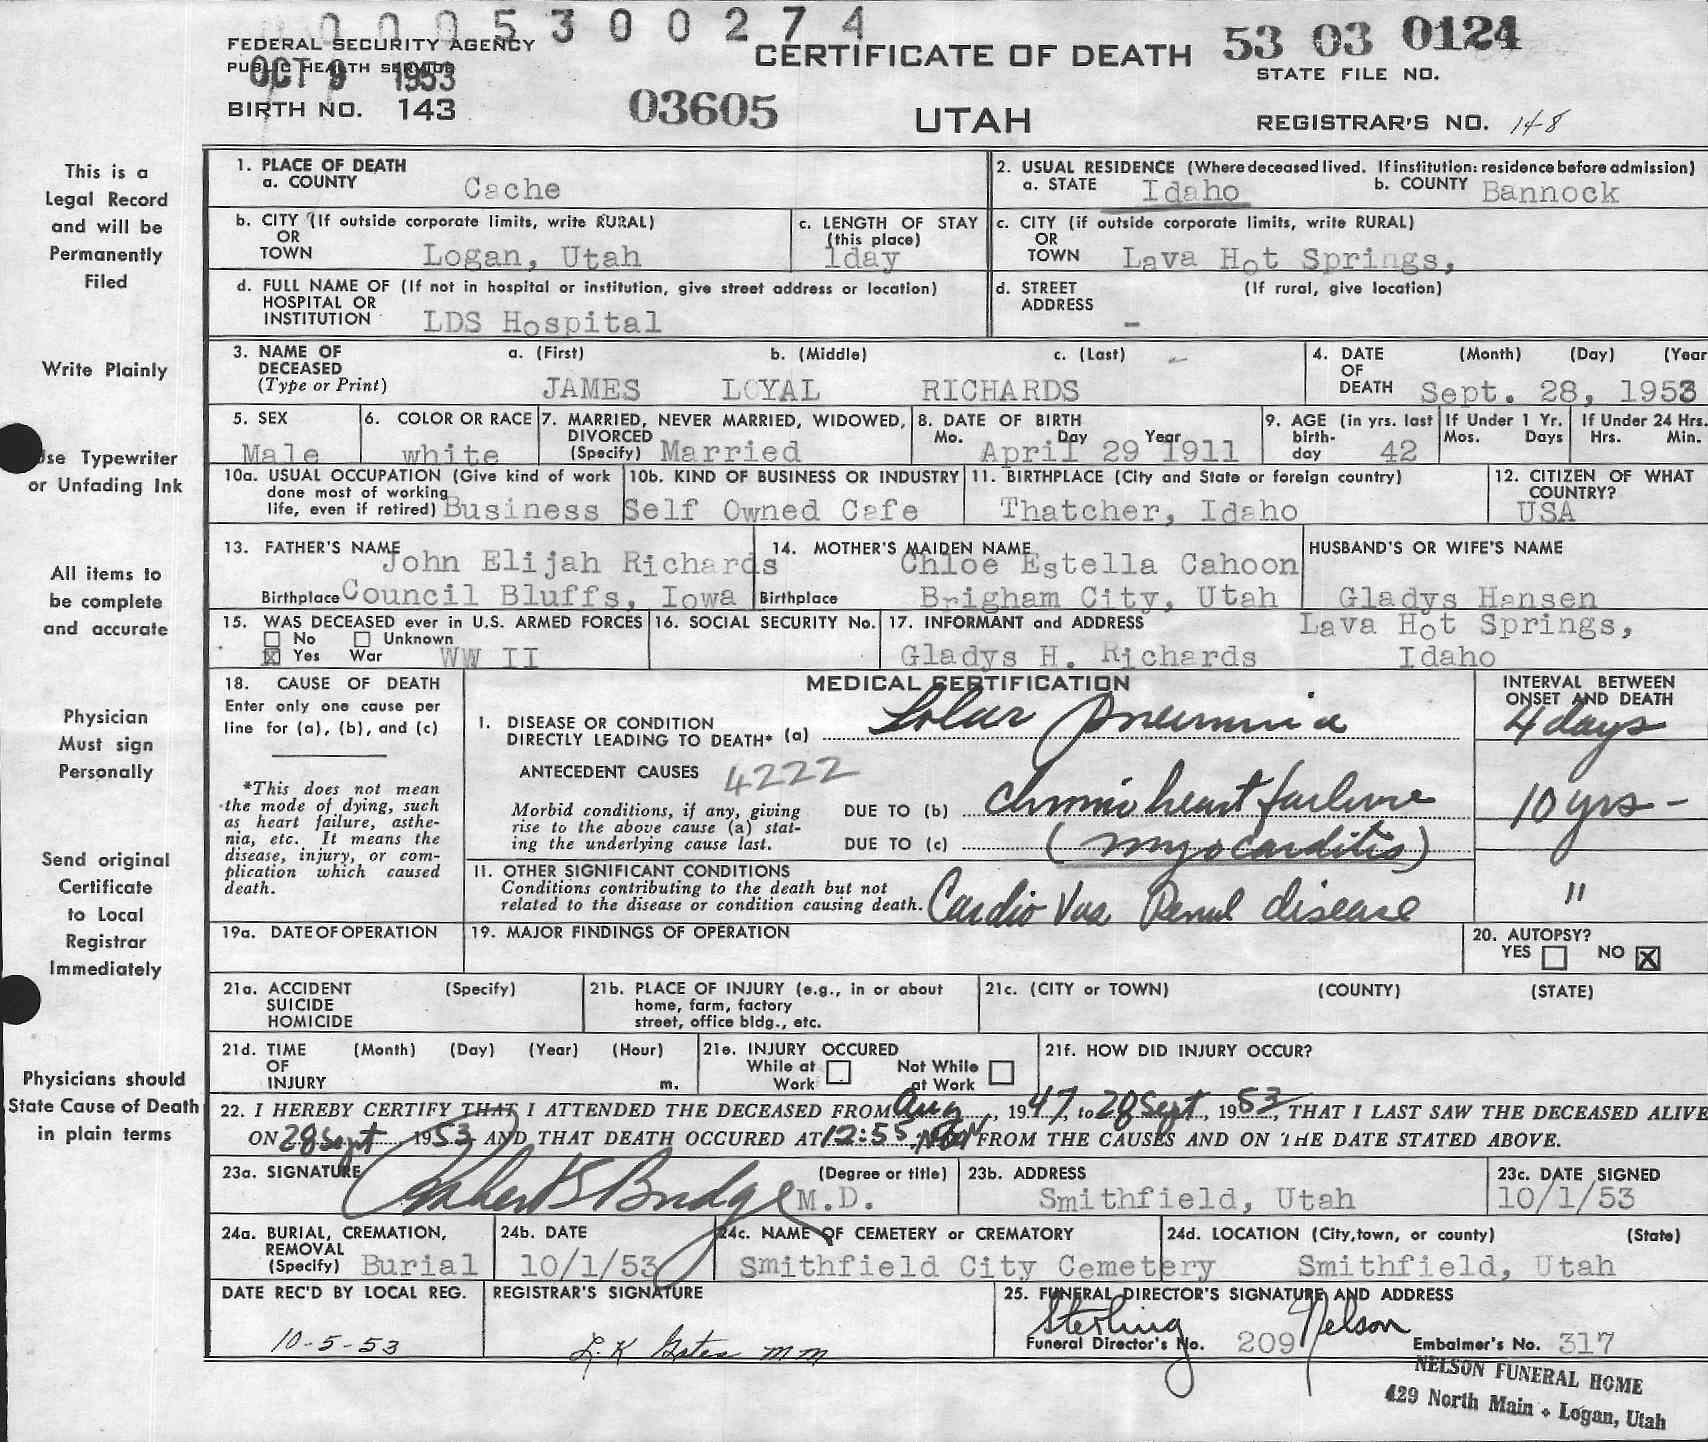 0005300274
FEDERAL SECURITY AGENCY
PUBLIC HEALTH SERVICE
OCT 9 1953
BIRTH NO. 143
03605
CERTIFICATE OF DEATH
UTAH
53 03 0124
STATE FILE NO.
REGISTRAR'S NO. 148
This is a
Legal Record
and will be
Permanently
Filed
Write Plainly
Use Typewriter
or Unfading Ink
All items to
be complete
and accurate
Physician
Must sign
Personally
Send original
Certificate
to Local
Registrar
Immediately
Physicians should
State Cause of Death
in plain terms
1. PLACE OF DEATH
a. COUNTY Cache
2. USUAL RESIDENCE (Where deceased lived. If institution: residence before admission)
a. STATE Idaho b. COUNTY Bannock
b. CITY (If outside corporate limits, write RURAL)
OR
TOWN Logan, Utah
c. LENGTH OF STAY
(this place)
1day
c. CITY (if outside corporate limits, write RURAL)
OR
TOWN Lava Hot Springs,
d. FULL NAME OF (If not in hospital or institution, give street address or location)
HOSPITAL OR
INSTITUTION LDS Hospital
d. STREET (If rural, give location)
ADDRESS -
3. NAME OF a. (First) b. (Middle) c. (Last)
DECEASED
(Type or Print) JAMES LOYAL RICHARDS
4. DATE (Month) (Day) (Year
OF
DEATH Sept. 28, 1953
5. SEX
Male
6. COLOR OR RACE
white
7. MARRIED, NEVER MARRIED, WIDOWED,
DIVORCED
(Specify) Married
8. DATE OF BIRTH
Mo. Day Year
April 29 1911
9. AGE (in yrs. last
birth-
day 42
If Under 1 Yr.
Mos. Days
If Under 24 Hrs.
Hrs. Min.
10a. USUAL OCCUPATION (Give kind of work
done most of working
life, even if retired) Business
10b. KIND OF BUSINESS OR INDUSTRY
Self Owned Cafe
11. BIRTHPLACE (City and State or foreign country)
Thatcher, Idaho
12. CITIZEN OF WHAT
COUNTRY?
USA
13. FATHER'S NAME
John Elijah Richards
Birthplace Council Bluffs, Iowa
14. MOTHER'S MAIDEN NAME
Chloe Estella Cahoon
Birthplace Brigham City, Utah
HUSBAND'S OR WIFE'S NAME
Gladys Hansen
15. WAS DECEASED ever in U.S. ARMED FORCES
No Unknown
Yes War WW II
16. SOCIAL SECURITY No.
17. INFORMANT and ADDRESS Lava Hot Springs,
Gladys H. Richards Idaho
18. CAUSE OF DEATH
Enter only one cause per
line for (a), (b), and (c)
*This does not mean
the mode of dying, such
as heart failure, asthe-
nia, etc. It means the
disease, injury, or com-
plication which caused
death.
MEDICAL CERTIFICATION
INTERVAL BETWEEN
ONSET AND DEATH
I. DISEASE OR CONDITION
DIRECTLY LEADING TO DEATH* (a) Lobar pneumonia 4 days
ANTECEDENT CAUSES 4222
Morbid conditions, if any, giving
rise to the above cause (a) stat-
ing the underlying cause last.
DUE TO (b) chronic heart failure 10 yrs -
DUE TO (c) (myocarditis)
II. OTHER SIGNIFICANT CONDITIONS
Conditions contributing to the death but not
related to the disease or condition causing death. Cardio Vas Renal disease "
19a. DATE OF OPERATION
19. MAJOR FINDINGS OF OPERATION
20. AUTOPSY?
YES NO X
21a. ACCIDENT (Specify)
SUICIDE
HOMICIDE
21b. PLACE OF INJURY (e.g., in or about
home, farm, factory
street, office bldg., etc.
21c. (CITY or TOWN) (COUNTY) (STATE)
21d. TIME (Month) (Day) (Year) (Hour)
OF
INJURY m.
21e. INJURY OCCURED
While at Work
Not While at Work
21f. HOW DID INJURY OCCUR?
22. I HEREBY CERTIFY THAT I ATTENDED THE DECEASED FROM Aug, 1947, to 28 Sept, 1953, THAT I LAST SAW THE DECEASED ALIVE
ON 28 Sept 1953 AND THAT DEATH OCCURED AT 12:55 FROM THE CAUSES AND ON THE DATE STATED ABOVE.
23a. SIGNATURE (Degree or title)
Budge M.D.
23b. ADDRESS
Smithfield, Utah
23c. DATE SIGNED
10/1/53
24a. BURIAL, CREMATION,
REMOVAL
(Specify) Burial
24b. DATE
10/1/53
24c. NAME OF CEMETERY or CREMATORY
Smithfield City Cemetery
24d. LOCATION (City,town, or county) (State)
Smithfield, Utah
DATE REC'D BY LOCAL REG.
10-5-53
REGISTRAR'S SIGNATURE
25. FUNERAL DIRECTOR'S SIGNATURE AND ADDRESS
Sterling Nelson
Funeral Director's No. 209 Embalmer's No. 317
NELSON FUNERAL HOME
429 North Main - Logan, Utah